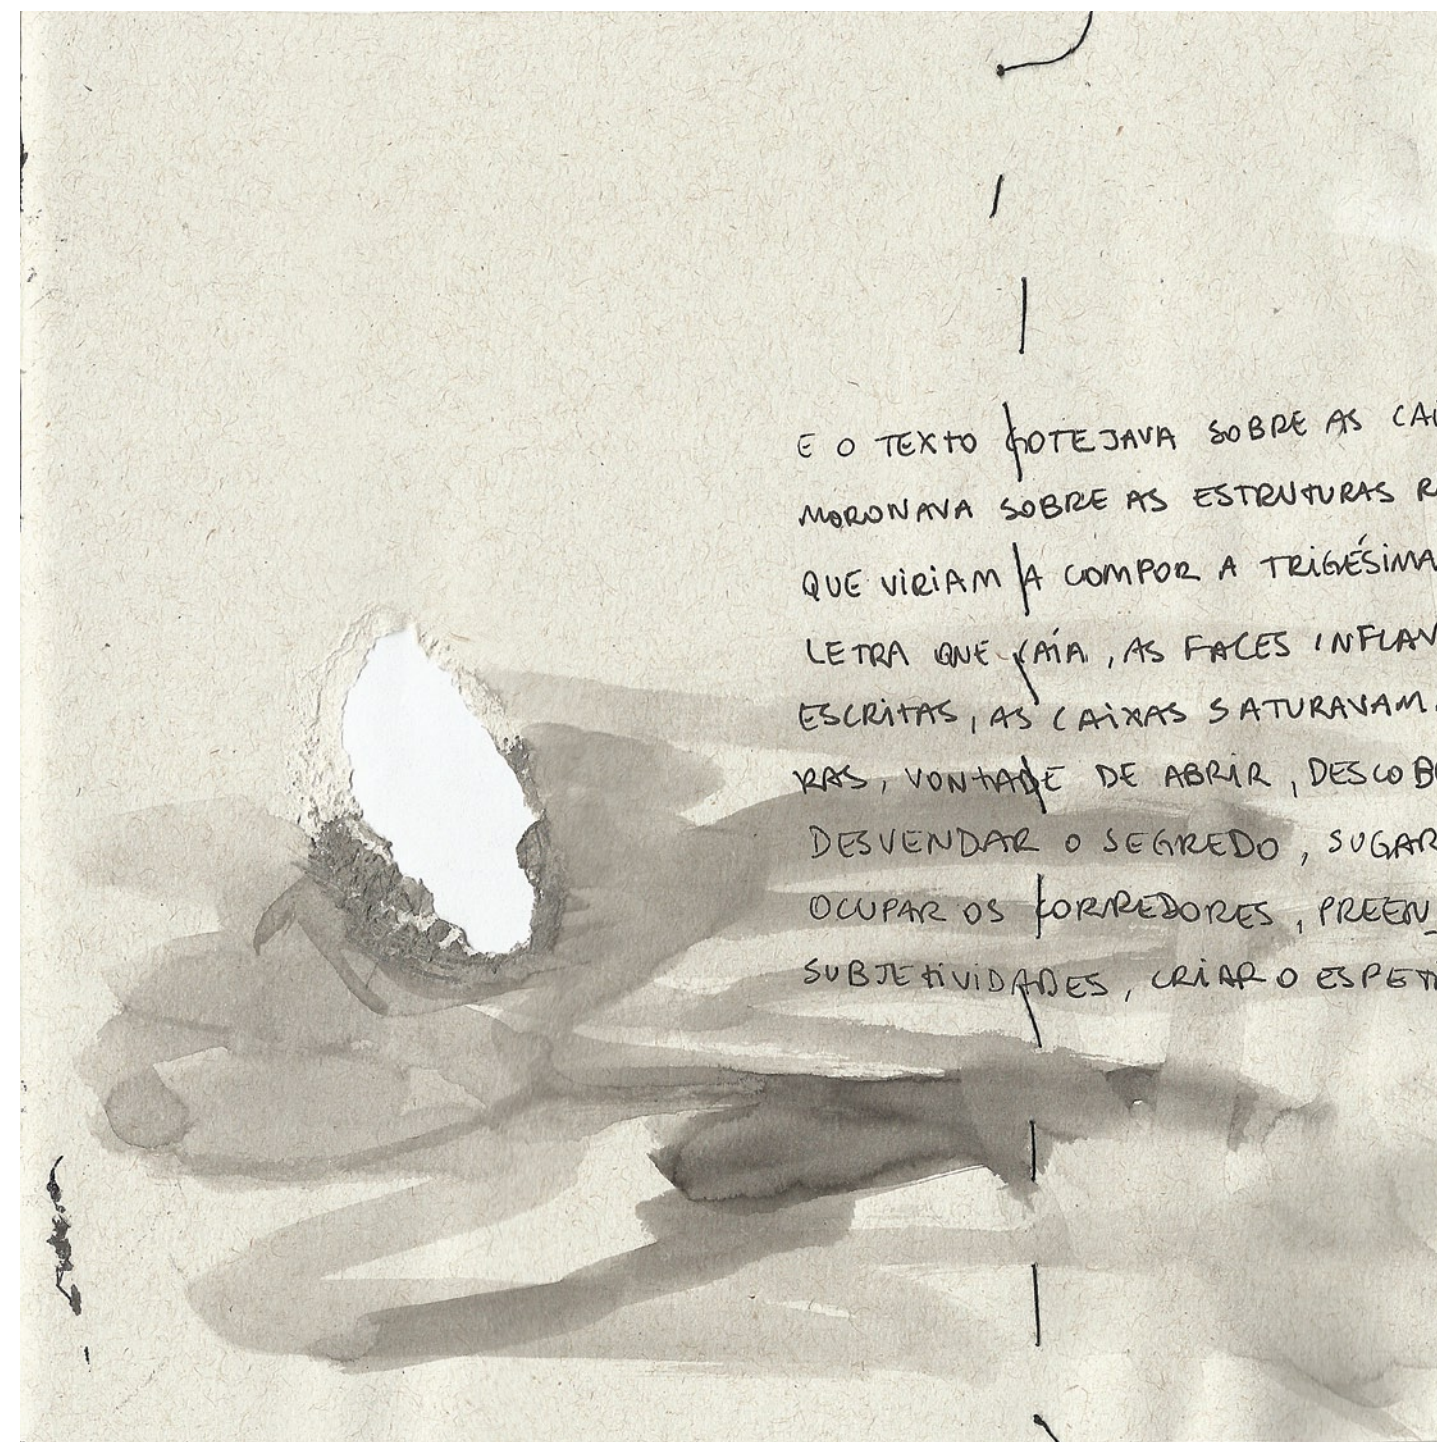 E O TEXTO GOTEJAVA SOBRE AS CAI
MORONAVA SOBRE AS ESTRUTURAS R
QUE VIRIAM A COMPOR A TRIGÉSIMA
LETRA QUE CAÍA, AS FACES INFLAV
ESCRITAS, AS CAIXAS SATURAVAM.
RAS, VONTADE DE ABRIR, DESCOB
DESVENDAR O SEGREDO, SUGAR
OCUPAR OS CORREDORES, PREEN_
SUBJETIVIDADES, CRIAR O ESPET